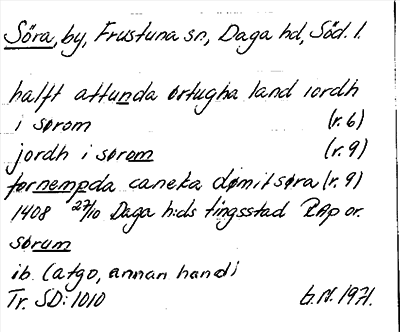 Söra, by, Frustuna sn, Daga hd, Söd. l.
halft attunda ørtugha land iordh
i sørom (r.6)
jordh i sørom (r.9)
fornempda caneka dømil søra (r.9)
1408 27/10 Daga h:ds tingsstad RAp or.
sørum
ib. (atgo, annan hand)
Tr. SD: 1010 G.N. 1971.